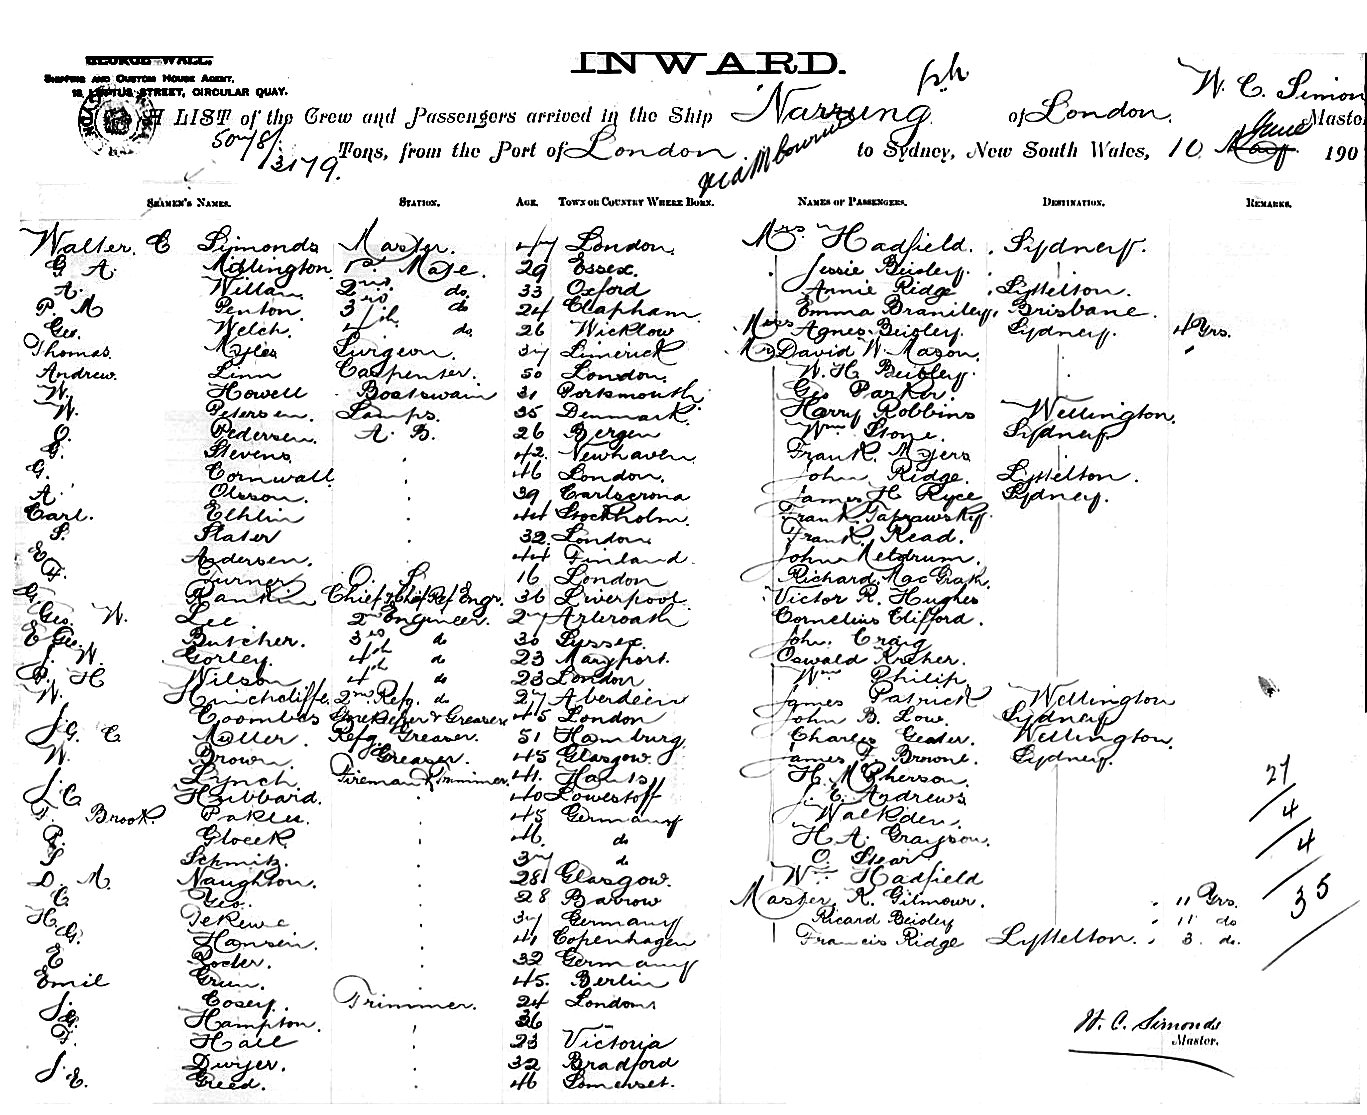 GEORGE WALL,
SHIPPING AND CUSTOM HOUSE AGENT,
LOFTUS STREET, CIRCULAR QUAY.
INWARD.
W. C. Simon
A LIST of the Crew and Passengers arrived in the Ship Narrung of London. Master
5078/3179. Tons, from the Port of London via Melbourne to Sydney, New South Wales, 10 June May 190
SEAMEN'S NAMES. STATION. AGE. TOWN OR COUNTRY WHERE BORN. NAMES OF PASSENGERS. DESTINATION. REMARKS.
Walter. C Simonds Master. 47 London. Mrs Hadfield. Sydney.
G A. Millington 1st Mate. 29 Essex. Jessie Beisley.
A. Willan 2nd do 33 Oxford Annie Ridge Lyttelton.
P. M Penton 3rd do 24 Clapham. Emma Braniley, Brisbane.
Geo. Welch. 4th do 26 Wicklow Miss Agnes Beisley. Sydney. 4 Yrs.
Thomas. Myles Surgeon. 37 Limerick Mr David W. Mason.
Andrew. Linn Carpenter. 50 London. W. H. Beisley.
W. Howell Boatswain 31 Portsmouth Geo Parker.
W. Petersen. Lamps. 35 Denmark. Harry Robbins Wellington.
O. Pedersen. A. B. 26 Bergen Wm Stone. Sydney.
G. Stevens 42. Newhaven. Frank. Myers
G. Cornwall 46 London. John Ridge. Lyttelton.
A. Olsson. 39 Carlscrona James H Ryce Sydney.
Carl. Ethlin 44 Stockholm. Frank
S. Slater 32. London. Frank. Read.
E Andersen. 44 Finland. John Meldrum.
F. Turner O. S. 16 London Richard Mac Grath.
G. Rankin Chief & Chief Ref Engr. 36 Liverpool. Victor R. Hughes
Geo. W. Lee 2nd Engineer. 27 Arbroath Cornelius Clifford.
E Geo. Butcher. 3rd do 30 Sussex. John. Craig
J. W. Gorley. 4th do 23 Maryport. Oswald Kocher.
P. H Wilson 4 do 23 London Wm Philip
W. Hinchcliffe. 2nd Refg. do 27 Aberdeen James Patrick Wellington
Coombes Storekeeper & Greaser 45 London John B. Low. Sydney
J. G. C Muller. Refg Greaser. 51 Hamburg. Charles Geater. Wellington.
W. Brown. Greaser. 45 Glasgow. James F. Browne. Sydney.
Lynch. Fireman & Trimmer. 41. Hants H. McPherson.
J. C Hubbard. 40 Lowestoff J. E. Andrews
F. Brook. 45 Germany Walkden.
P. Glocek 46. do H A. Grayson.
S Schmitz. 37 do O. Stear
D. M. Naughton. 28 Glasgow. Wm Hadfield
C Geo. 28 Barrow Master. K. Gilmour. 11 Yrs.
H 37 Germany Ricard Beisley 11 do
G. Hansen. 41 Copenhagen Francis Ridge Lyttelton. 3. do.
E 32 Germany
Emil Grun. 45. Berlin
J. Cosey. Trimmer. 24 London
G. Hampton. 36 "
F. Hall 23 Victoria
Dwyer. 32 Bradford
J. E. Greed. 46 Somerset.
27
4
4
35
W. C. Simonds
Master.